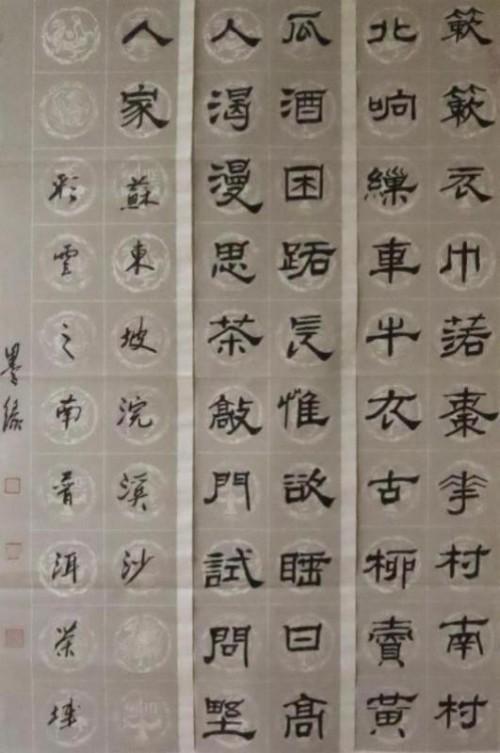 簌簌衣巾落棗花村南村
北响繅車牛衣古柳賣黃
瓜酒困路長惟欲睡日高
人渴漫思茶敲門試問野
人家 蘇東坡浣溪沙
彩雲之南普洱茶
墨緣